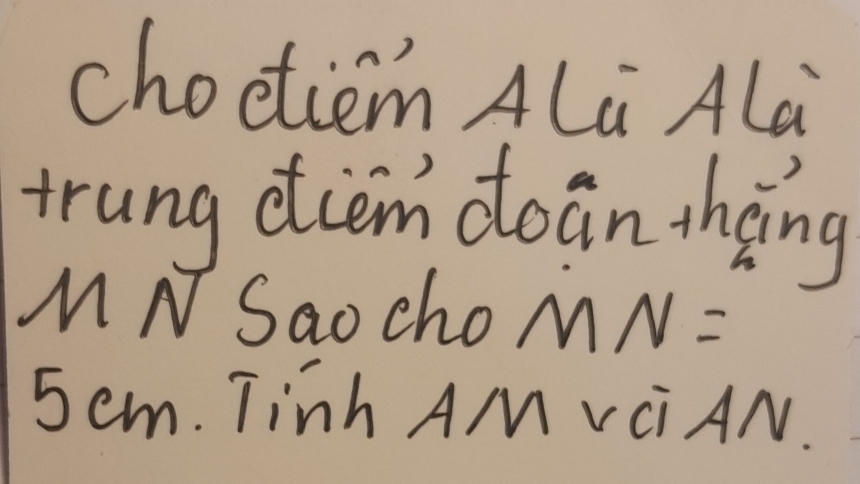 Cho điểm A là A là
trung điểm đoạn thẳng
MN Sao cho MN =
5cm. Tính AM và AN.